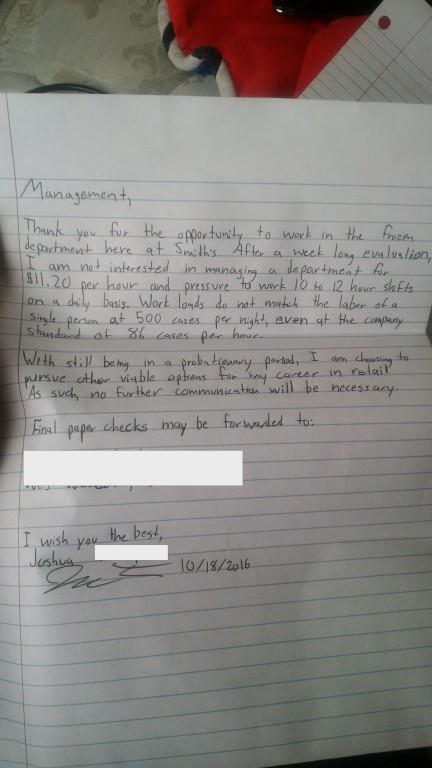 Management,
Thank you for the opportunity to work in the frozen
department here at Smith's. After a week long evaluation,
I am not interested in managing a department for
$11.20 per hour and pressure to work 10 to 12 hour shifts
on a daily basis. Work loads do not match the labor of a
single person at 500 cases per night, even at the company
standard of 86 cases per hour.
With still being in a probationary period, I am choosing to
pursue other viable options for my career in retail.
As such, no further communication will be necessary.
Final paper checks may be forwarded to:
I wish you the best,
Joshua
10/18/2016